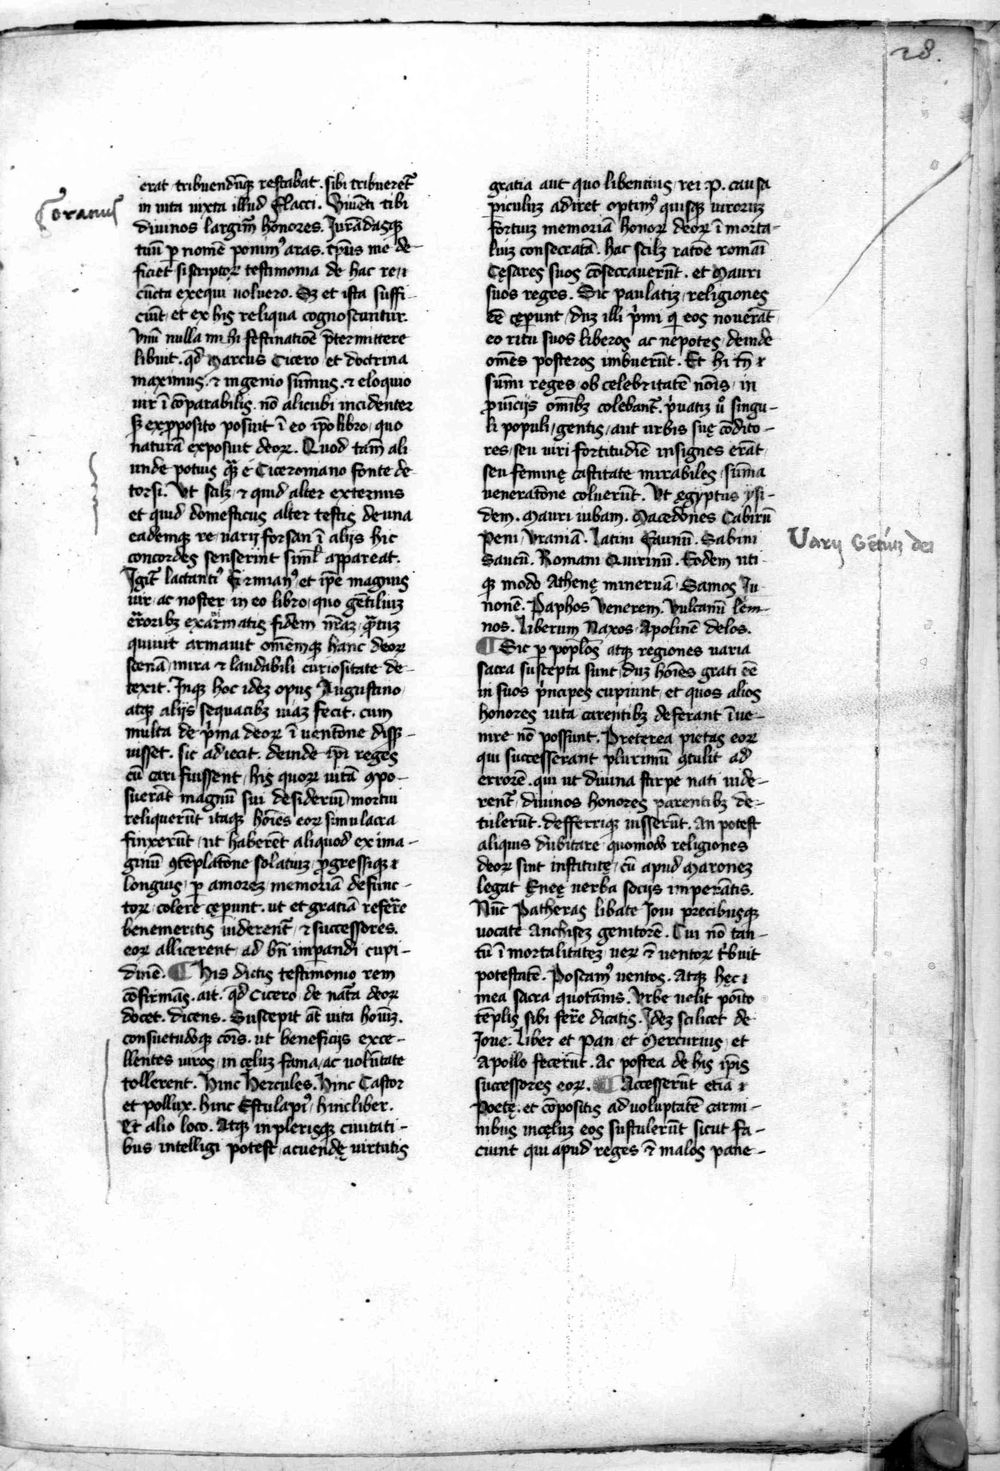 28.
Oratius
erat, tribuendūq; restabat, sibi tribueret᷑
in uita iuxta illud Flacci. Viuēti tibi
diuinos largim᷑ honores. Jurādasq;
tuū ꝑ nomē ponimꝰ aras. tp̄us me de-
ficiet si scriptoꝝ testimonia de hac re, ⁊
cūcta exequi uoluero. Sꝫ et ista suffi-
ciūt, et ex his reliqua cognoscūtur.
Vnū nulla mihi festinatiōe p̄termittere
libuit. qd̄ Marcus Cicero, et doctrina
maximus. ⁊ ingenio sūmus. ⁊ eloquio
uir īcōparabilis. nō alicubi incidenter
sꝫ ex ꝓposito posuit ī eo ip̄o libro, quo
naturā exposuit deoꝝ. Quod tam̄ ali
unde potius quā e Ciceromano fonte de-
torsi. Vt scilꝫ, ⁊ quid alter externus
et quid domesticus alter testis de una
eademq; re, uarij forsan ī alijs hic
concordes senserint, simĺ appareat.
Jgit᷑ lactantiꝰ Firmianꝰ, et ip̄e magnus
uir, ac noster in eo libro, quo gētiliuꝫ
erroribꝫ exarmatis fidem nr̄aꝫ, quātuꝫ
quiuit armauit omēmq; hanc deoꝝ
scenā, mira ⁊ laudabili curiositate de-
texit. Jnq; hoc ideꝫ opus Augustino,
atq; alijs sequacibꝫ uiaꝫ fecit. cum
multa de p̄ma deoꝝ īuentōne diss-
uisset. sic adiecit. deinde ip̄i reges
cū cari fuissent, his quoꝝ uitā ꝯpo-
suerāt magnū sui desideriū mortui
reliquerūt itaq; hōies eoꝝ simulacra
finxerūt, ut haberēt aliquod ex ima-
ginū ꝯtēplatōne solatiuꝫ, ꝓgressiq; ⁊
longius, ꝑ amoreꝫ memoriā defunc-
toꝝ, colere cęperunt. ut et gratiā referre
benemeritis uiderent᷑, ⁊ successores.
eoꝝ allicerent, ad bn̄ imperandi cupi-
dinē. ¶ His dictis testimonio rem
cōfirmās. ait. qd̄ Cicero de nat̄a deoꝝ
docet. dicens. Suscepit āt uita hoīuꝫ.
consuetudoq; cōis. ut beneficijs exce-
llentes uiros, in cęluꝫ fama, ac uolūtate
tollerent. Hinc Hercules. Hinc Castor
et pollux. hinc Esculapiꝰ, hinc liber.
Et alio loco. Atq; in plerisq; ciuitati-
bus intelligi potest, acuendę uirtutis
gratia aut quo libentius, rei .p. causa
ꝑiculuꝫ adiret optimꝰ quisq; uiroruꝫ
fortiuꝫ memoriā honoꝝ deoꝝ ī morta-
liuꝫ consecratā. hac scilꝫ ratōe romāi
Cęsares suos cōsecrauerūt. et Mauri
suos reges. Sic paulatiꝫ, religiones
ēē cęperunt, duꝫ illi p̄mi qi eos nouerāt,
eo ritu suos liberos ac nepotes, deinde
omēs posteros imbuerūt. Et hi tn̄ ⁊
sūmi reges ob celebritatē nōis, in
ꝓuīcijs omībꝫ colebant᷑. p̄uatiꝫ uº singu-
li populi, gentis, aut urbis suę cōdito-
res, seu uiri fortitudīe insignes erāt,
seu feminę castitate mirabiles, sūma
ueneratōne coluerūt. Vt ęgyptus ysi-
dem. Mauri iubam. Macedōnes Cabirū
Peni Vraniā. Latini Faunū. Sabini
Sancū. Romani Quirinū. Eodem uti-
q; modo Athenę mineruā. Samos Ju-
nonē. Paphos Venerem. Vulcanū lēm-
nos. Liberum Naxos, Apolinē delos.
¶ Sic ꝑ pop̄los atq; regiones uaria
sacra suscepta sunt, duꝫ hōies grati ēē
in suos p̄ncipes cupiunt, et quos alios
honores uita carentibꝫ deferant īue-
nire nō possunt. Preterea pietas eoꝝ
qui successerant plurimū ꝯtulit ad
errorē. qui ut diuina stirpe nati uide-
rent᷑, diuinos honores parentibꝫ de-
tulerūt. defferriq; iusserūt. An potest
aliquis dubitare, quomodo religiones
deoꝝ sint institutę, cū apud Maroneꝫ
legat Enęę uerba socijs imperātis.
Nūc Patheras libate Joui precibusq;
uocate Anchiseꝫ genitorē. Cui nō tan-
tū īmortalitateꝫ, ueꝝ ⁊ uentoꝝ tribuit
potestatē. Poscamꝰ uentos. Atq; hęc ⁊
mea sacra quotānis. Vrbe uelit poīto
tēplis sibi ferre dicatis. Jdeꝫ scilicet de
Joue. Liber et Pan, et Mercurius, et
Apollo fecerūt. Ac postea de his ip̄is
successores eoꝝ. ¶ Accesserūt etiā ⁊
Poetę. et cōpositis ad uoluptatē carmi-
nibus in cęluꝫ eos sustulerūt sicut fa-
ciunt qui apud reges ⁊ malos pane-
Uarij Gētiuꝫ dei